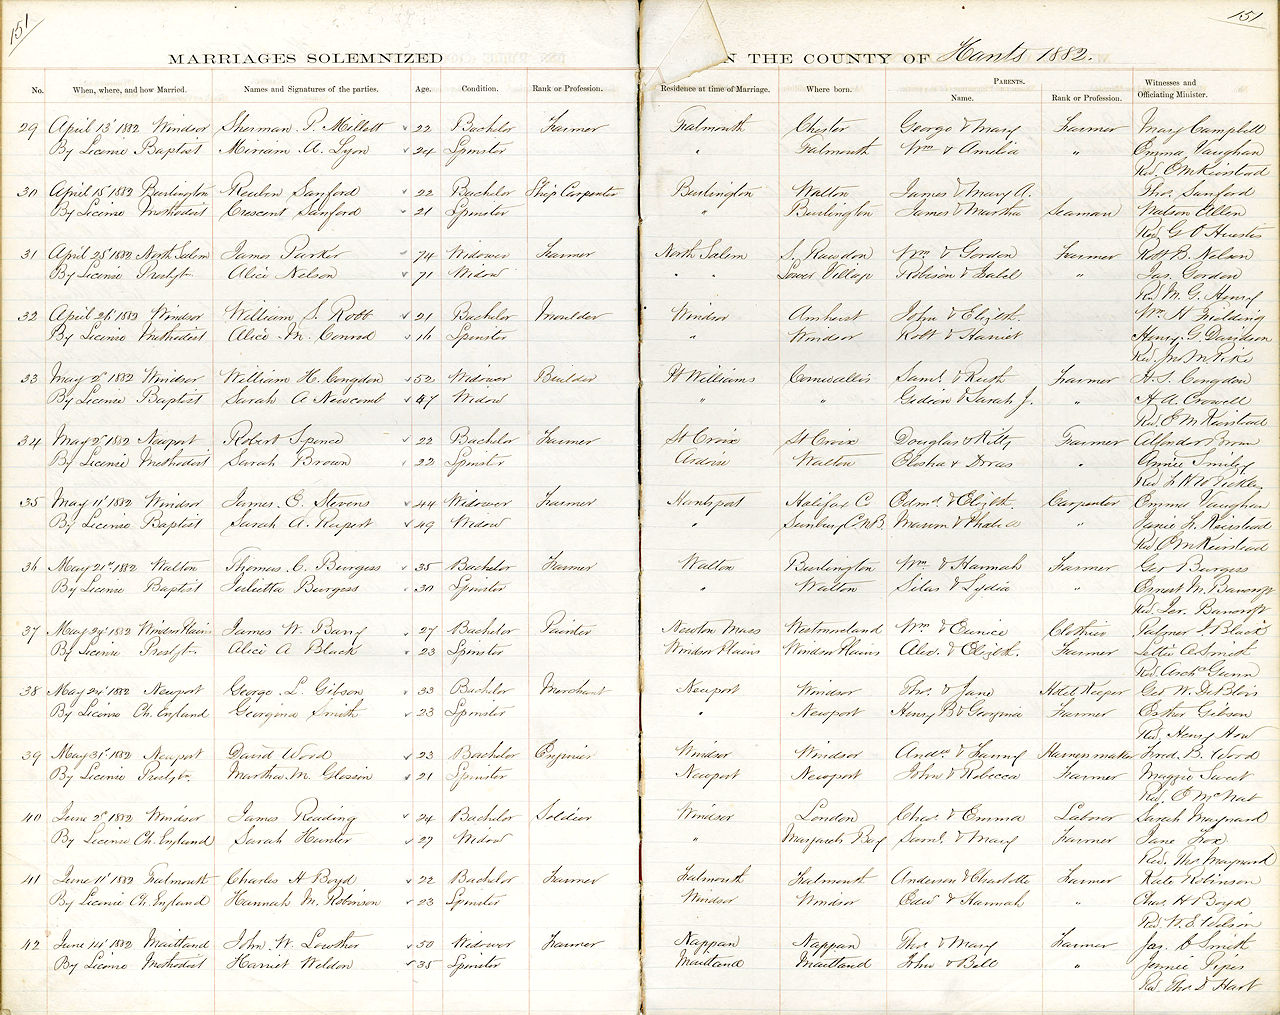 151
151
MARRIAGES SOLEMNIZED
N THE COUNTY OF Hants 1882.
No. When, where, and how Married. Names and Signatures of the parties. Age. Condition. Rank or Profession. Residence at time of Marriage. Where born. PARENTS. Name. Rank or Profession. Witnesses and Officiating Minister.
29 April 13" 1882 Windsor Sherman P. Millett 22 Bachelor Farmer Falmouth Chester George & Mary Farmer Mary Campbell
By License Baptist Miriam A. Lyon 24 Spinster " Falmouth Wm & Amelia " Emma Vaughan
Rev. E M Keirstead
30 April 15" 1882 Burlington Reuben Sanford 22 Bachelor Ship Carpenter Burlington Walton James & Mary A. Tho. Sanford
By License Methodist Crescent Sanford 21 Spinster " Burlington James & Martha Seaman Watson Allen
Rev. G O Huestis
31 April 25" 1882 North Salem James Parker 74 Widower Farmer North Salem S. Rawdon Wm & Gordon Farmer Robt B. Nelson
By License Presbyt. Alice Nelson 71 Widow " " Lower Village Robison & Isabel " Jas. Gordon
Rev. M. G. Henry
32 April 26" 1882 Windsor William S. Robb 21 Bachelor Moulder Windsor Amherst John & Elizth. Wm H Fielding
By License Methodist Alice M. Conrod 16 Spinster " Windsor Robt & Harriet Henry G. Davidson
Rev. Jno M Pike
33 May 2" 1882 Windsor William H. Congdon 52 Widower Builder Pt Williams Cornwallis Saml. & Ruth Farmer H. S. Congdon
By License Baptist Sarah A Newcomb 47 Widow " " Gideon & Sarah J. " H. A. Crowell
Rev. E M Keirstead
34 May 2" 1882 Newport Robert Spence 22 Bachelor Farmer St Croix St Croix Douglas & Kitty Farmer Brown
By License Methodist Sarah Brown 22 Spinster Ardoise Walton Elisha & " Annie Smiley
Rev.
35 May 11" 1882 Windsor James E. Stevens 44 Widower Farmer Hantsport Halifax C Edmd. & Elizth. Carpenter Emma Vaughan
By License Baptist Sarah A. Rupert 49 Widow " Sunbury C N.B. & " Janie L. Keirstead
Rev. E M Keirstead
36 May 21st 1882 Walton Thomas C. Burgess 35 Bachelor Farmer Walton Burlington Wm & Hannah Farmer Geo Burgess
By License Baptist Julietta Burgess 30 Spinster " Walton Silas & Lydia " Ernest M. Bancroft
Rev. Jer. Bancroft
37 May 24" 1882 Windsor Plains James W. Barry 27 Bachelor Painter Newton Mass Westmoreland Wm & Eunice Clothier Palmer J. Black
By License Presbyt. Alice A Black 23 Spinster Windsor Plains Windsor Plains Alex. & Elizth. Farmer Lettie A Smith
Rev. Archd Gunn
38 May 24" 1882 Newport George L. Gibson 33 Bachelor Merchant Newport Windsor Tho. & Jane Hotel Keeper Geo W. DeBlois
By License Ch. England Georgina Smith 23 Spinster " Newport Henry B & Georgina Farmer Esther Gibson
Rev. Henry How
39 May 31st 1882 Newport David Wood 23 Bachelor Engineer Windsor Windsor Andw & Fanny Harnessmaker Fred. B. Wood
By License Presbyt. Martha M. Glossin 21 Spinster Newport Newport John & Rebecca Farmer Maggie Sweet
Rev. E McNab
40 June 2" 1882 Windsor James Reading 24 Bachelor Soldier Windsor London Chas. & Emma Laborer Sarah Maynard
By License Ch. England Sarah Hunter 27 Widow " Margarets Bay Saml. & Mary Farmer Jane Fox
Rev. Tho Maynard
41 June 11" 1882 Falmouth Charles H Boyd 22 Bachelor Farmer Falmouth Falmouth Anderson & Charlotte Farmer Kate Robinson
By License Ch. England Hannah M. Robinson 23 Spinster Windsor Windsor Edw & Hannah " Chas. H Boyd
Rev. W. E. Wilson
42 June 14" 1882 Maitland John W. Lowther 50 Widower Farmer Nappan Nappan Tho. & Mary Farmer Jas. C Smith
By License Methodist Harriet Weldon 35 Spinster Maitland Maitland John & Bell " Jennie Pipes
Rev. Tho D Hart